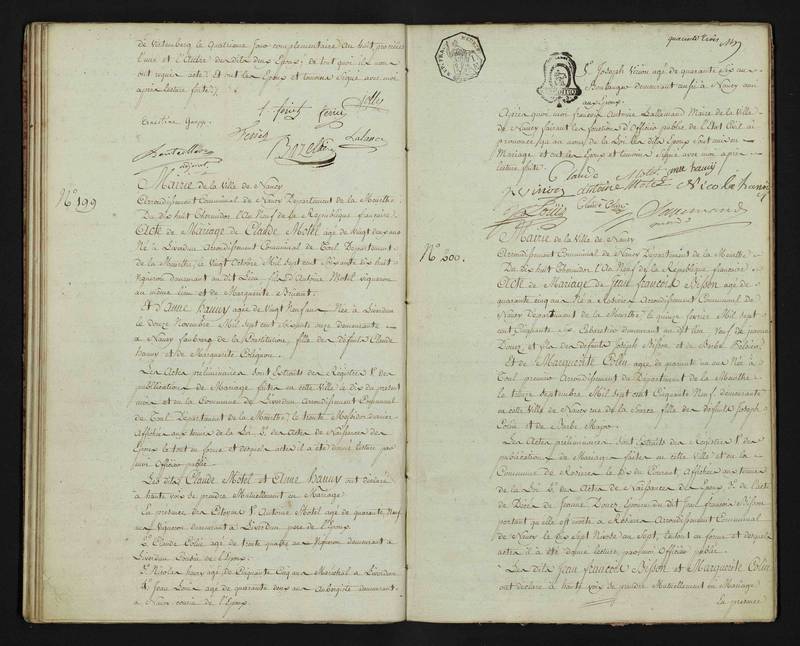 de Virtemberg le Quatrieme jour complementaire An huit
l'une et l'Autre desdits deux Epoux; de tout quoi ils nous
ont requis acte; Et ont les Epoux et temoins Signé avec moi
après lecture faite
Jolly
Lalance
Bazelaire
No. 199
Mairie de la Ville de Nancy
Arrondissement Communal de Nancy Departement de la Meurthe
Du dix huit Thermidor l'An Neuf de la Republique française
Acte de Mariage de Claude Motel agé de Vingt deux ans
Né à Liverdun Arrondissement Communal de Toul Departement
de la Meurthe, le Vingt Octobre Mil Sept cent Soixante dix huit
Vigneron demeurant au dit Lieu fils d'Antoine Motel Vigneron
au même lieu et de Marguerite
Et d'Anne hanus agée de Vingt Neuf ans Née à Liverdun
le douze Novembre Mil Sept cent Soixante onze demeurante
à Nancy faubourg de la Constitution, fille des defunts Claude
hanus et de Marguerite Colignon.
Les Actes préliminaires sont Extraits des Registres 1° des
publications de Mariage faites en cette Ville le dix du présent
mois et en la Commune de Liverdun Arrondissement Communal
de Toul Departement de la Meurthe, le trente Messidor dernier
Affichées aux termes de la Loi 2° des Actes de Naissances des
Epoux le tout en forme et desquels actes il a été donné lecture par
moi Officier public.
Lesdits Claude Motel et Anne hanus ont declaré
à haute voix se prendre Mutuellement en Mariage
En présence des Citoyens 1° Antoine Motel agé de quarante Neuf
ans Vigneron demeurant à Liverdun pere de l'Epoux
2° Claude Colin agé de trente quatre ans Vigneron demeurant à
Liverdun Cousin de l'Epoux.
3° Nicolas hanus agé de Cinquante Cinq ans Maréchal à Liverdun
4° Jean agé de quarante deux ans Aubergiste demeurant
à Nancy cousin de l'Epoux.
quarante trois
4° Joseph agé de quarante Six ans
Boulanger demeurant aussi à Nancy ami
aux Epoux.
Après quoi moi françois Antoine Lallemand Maire de la Ville
de Nancy faisant les fonctions d'Officier public de l'Etat Civil ai
prononcé qu'au nom de la Loi les dits Epoux sont unis en
Mariage et ont les Epoux et temoins Signé avec moi après
lecture faite
Claude Motel anne hanus
antoine Motel Nicola hanus
Claude Colin
Lallemand
No. 200.
Mairie de la Ville de Nancy
Arrondissement Communal de Nancy Departement de la Meurthe
Du dix huit Thermidor l'An Neuf de la Republique française
Acte de Mariage de Jean françois Bisson agé de
quarante cinq ans Né à Rosieres Arrondissement Communal de
Nancy Departement de la Meurthe, le quinze fevrier Mil Sept
cent Cinquante Six Cabaretier demeurant au dit lieu Veuf de Jeanne
Douez et fils des defunts Joseph Bisson et de Barbe
Et de Marguerite Colin agée de quarante un ans Née à
Toul premier Arrondissement du Departement de la Meurthe
le treize Septembre Mil Sept cent Cinquante Neuf demeurante
en cette Ville de Nancy rue de la Source fille des defunts Joseph
Colin et de Barbe Magot
Les Actes préliminaires sont Extraits des Registres 1° des
publications de Mariage faites en cette Ville et en la
Commune de Rosieres le dix du Courant, Affichées aux termes
de la Loi 2° des Actes de Naissances des Epoux 3° de l'acte
de Décès de Jeanne Douez Epouse du dit Jean françois Bisson
portant qu'elle est morte à Rosieres Arrondissement Communal
de Nancy le dix Sept Nivose an Sept, le tout en forme et desquels
actes il a été donné lecture par moi Officier public.
Lesdits Jean françois Bisson et Marguerite Colin
ont declaré à haute voix se prendre Mutuellement en Mariage
En présence